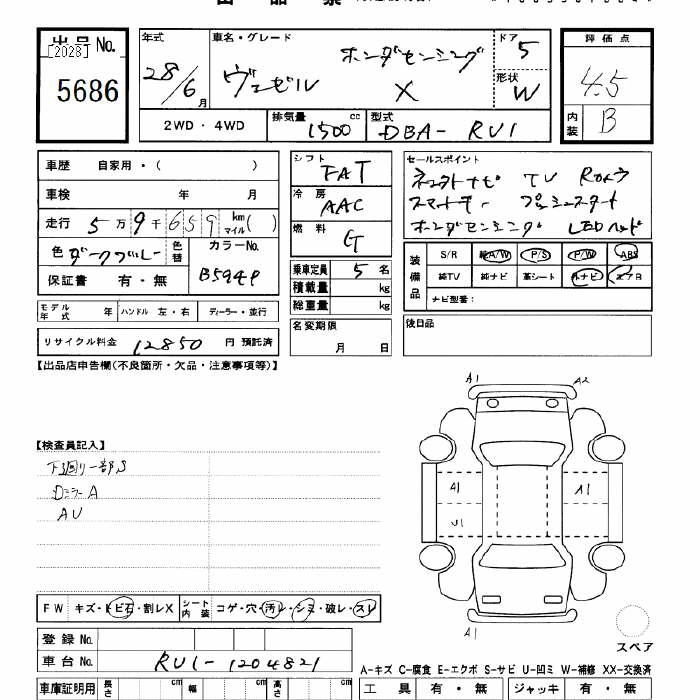 出品No.
[2028]
5686
年式
28/6月
車名・グレード
ホンダセンシング
ヴェゼル X
ドア 5
形状 W
評価点
4.5
内装 B
2WD・4WD
排気量 1500 cc
型式 DBA- RU1
車歴 自家用・( )
車検 年 月
走行 5万9千659 km マイル( )
色 ダークブルー 色替
カラーNo. B594P
保証書 有・無
モデル年式 年 ハンドル 左・右 ディーラー・並行
リサイクル料金 12850 円 預託済
シフト FAT
冷房 AAC
燃料 G
乗車定員 5 名
積載量 kg
総重量 kg
名変期限 月 日
セールスポイント
TV Rカメラ
スマートキー プッシュスタート
ホンダセンシング LEDヘッド
装備品
S/R 純A/W P/S P/W ABS
純TV 純ナビ 革シート 外ナビ エアB
ナビ型番:
後日品
【出品店申告欄(不良箇所・欠品・注意事項等)】
【検査員記入】
下廻り一部S
DミラーA
AU
A1 A2
A1 A1
U1
A1
スペア
FW キズ・トビ石・割レX シート内装 コゲ・穴・汚レ・シミ・破レ・スレ
登録No.
車台No. RU1-1204821
A-キズ C-腐食 E-エクボ S-サビ U-凹ミ W-補修 XX-交換済
車庫証明用 長さ cm 幅 cm 高さ cm
工具 有・無 ジャッキ 有・無